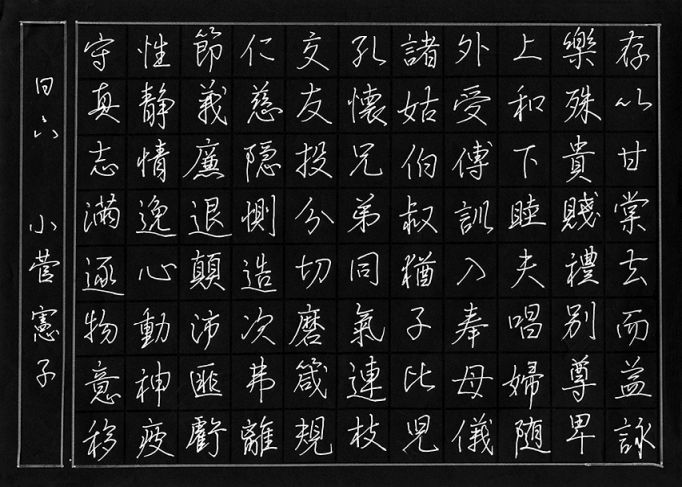 存以甘棠去而益詠
樂殊貴賤禮別尊卑
上和下睦夫唱婦随
外受傅訓入奉母儀
諸姑伯叔猶子比児
孔懐兄弟同氣連枝
交友投分切磨箴規
仁慈隠惻造次弗離
節義廉退顛沛匪虧
性静情逸心動神疲
守真志滿逐物意移
小菅憲子